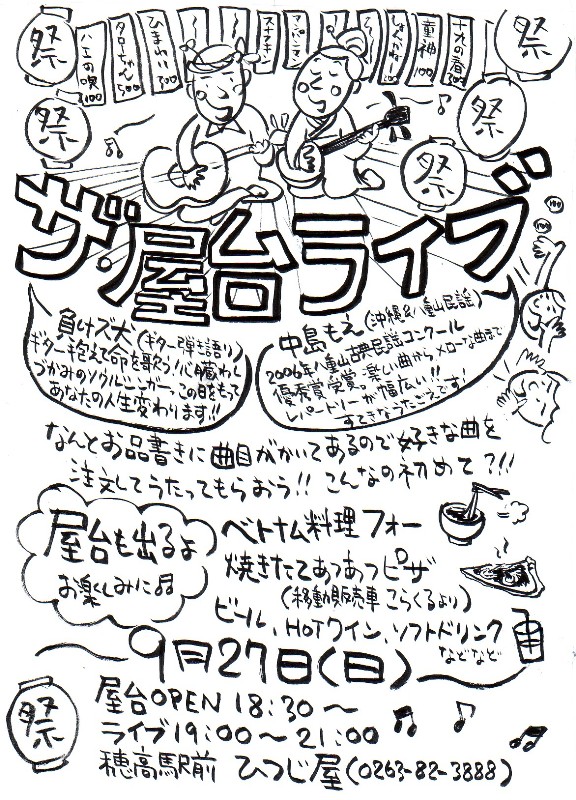 祭
ハエの唄
100
タロちゃん
500
スナフキン
童神
100
十九の春
祭
祭
祭
祭
ザ・屋台ライブ
負けズ犬(ギター弾き語り)
ギター抱えて命を歌う!心臓わし
づかみのソウルシンガー。この日をもって
あなたの人生変わります!!
中島もえ(沖縄&八重山民謡)
2006年八重山古典民謡コンクール
優秀賞受賞。楽しい曲からメローな曲まで
レパートリーが幅広い!!
すてきなうたごえです!
なんとお品書きに曲目がかいてあるので好きな曲を
注文してうたってもらおう!!こんなの初めて?!!
屋台も出るよ
お楽しみに
ベトナム料理フォー
焼きたてあつあつピザ
(移動販売車 こらくるより)
ビール、HOTワイン、ソフトドリンク
などなど
9月27日(日)
祭
屋台OPEN 18:30〜
ライブ19:00〜21:00
穂高駅前 ひつじ屋(0263-82-3888)